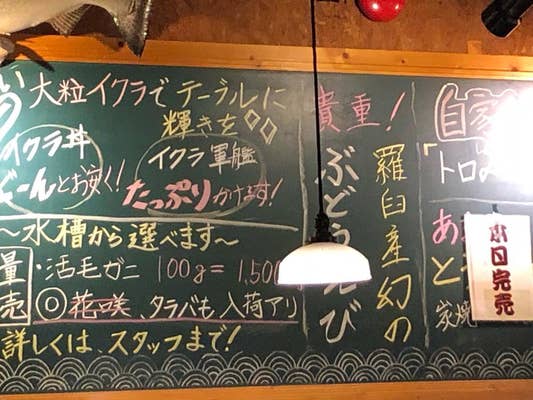 大粒イクラでテーブルに
輝きを
イクラ丼
どーんとお安く!
イクラ軍艦
たっぷりかけます!
～水槽から選べます～
量
売
・活毛ガニ 100g=1,500
◎花咲、タラバも入荷アリ
詳しくは、スタッフまで!
貴重!
羅臼産幻の
ぶどうえび
自家
「トロ
あ
と
炭焼
本日完売